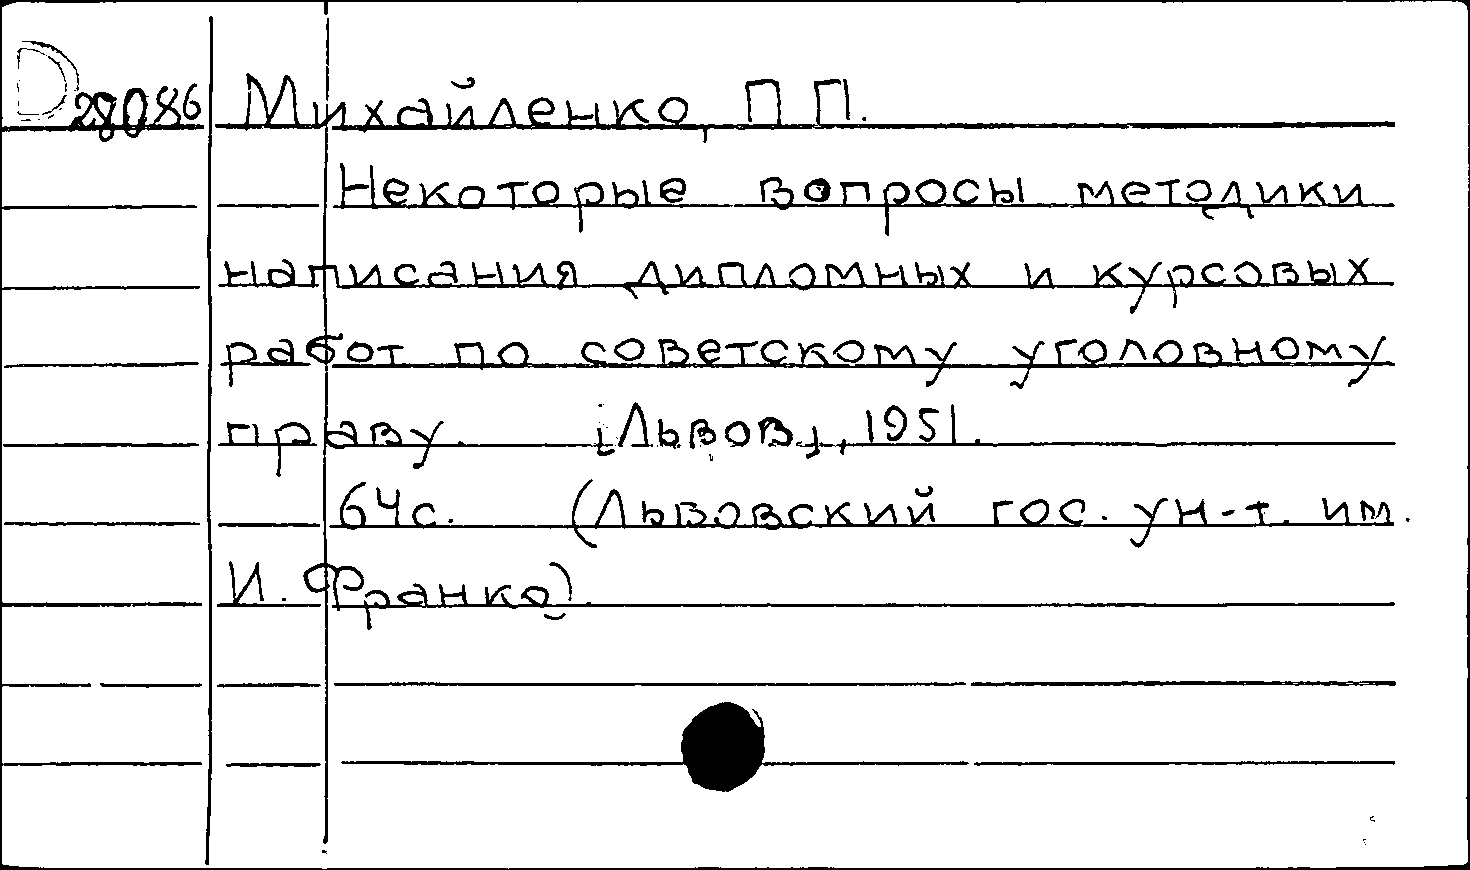 D 28086 Михайленко, П П.
Некоторые вопросы методики
написания дипломных и курсовых
работ по советскому уголовному
праву. [Львов], 1951.
64с. (Львовский гос. ун-т. им.
И. Франко).